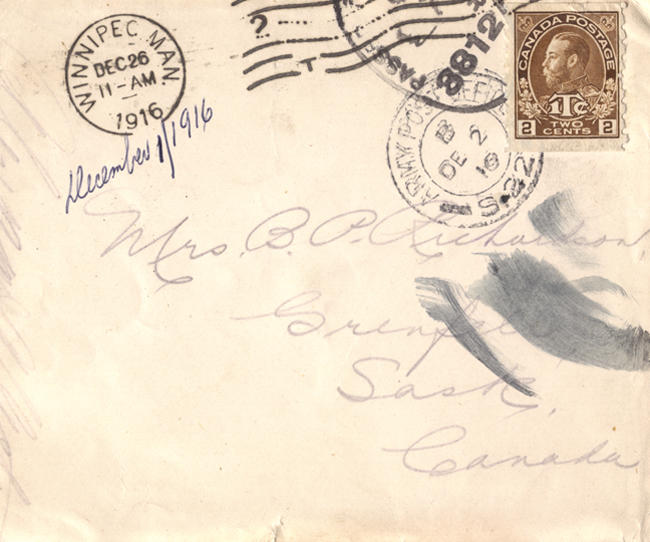 WINNIPEG MAN.
DEC 26
11-AM
1916
December 1/1916
?
T
PASSE
3812
ARMY POST OFFICE
B
DE 2
16
S.42
CANADA POSTAGE
1Tc
2 TWO CENTS 2
Mrs. B. P. Richardson
Grenfell
Sask.
Canada